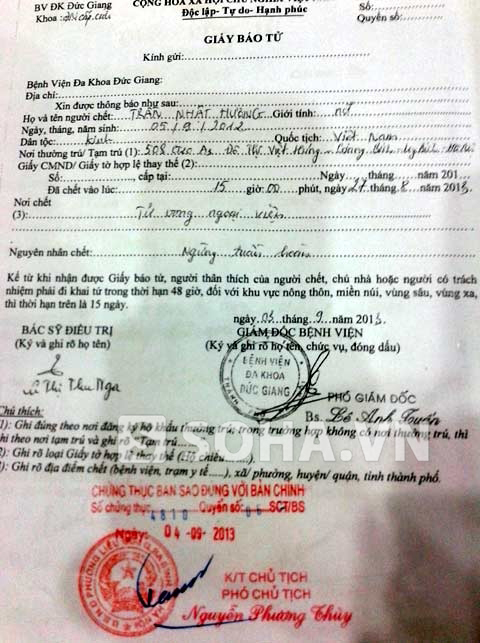 BV ĐK Đức Giang
CỘNG HÒA XÃ HỘI CHỦ NGHĨA VIỆT
Khoa : Cấp cứu
Độc lập- Tự do- Hạnh phúc
Số:
Quyển số:
GIẤY BÁO TỬ
Kính gửi:
Bệnh Viện Đa Khoa Đức Giang:
Địa chỉ:
Xin được thông báo như sau:
Họ và tên người chết: TRẦN NHẬT HƯƠNG Giới tính: nữ
Ngày, tháng, năm sinh: 05/9/2012
Dân tộc: kinh Quốc tịch: Việt Nam
Nơi thường trú/ Tạm trú (1): 508 Đô Thị Việt Hưng - Giang Biên - Lg Biên - Hà Nội
Giấy CMND/ Giấy tờ hợp lệ thay thế (2):
Số: cấp tại: Ngày tháng năm 201
Đã chết vào lúc: 15 giờ 00 phút, ngày 27 tháng 8 năm 2013
Nơi chết
(3): Tử vong ngoại viện
Nguyên nhân chết: Ngừng tuần hoàn
Kể từ khi nhận được Giấy báo tử, người thân thích của người chết, chủ nhà hoặc người có trách
nhiệm phải đi khai tử trong thời hạn 48 giờ, đối với khu vực nông thôn, miền núi, vùng sâu, vùng xa,
thì thời hạn trên là 15 ngày.
ngày 03 tháng 9 năm 2013
BÁC SỸ ĐIỀU TRỊ
GIÁM ĐỐC BỆNH VIỆN
(Ký và ghi rõ họ tên)
(Ký và ghi rõ họ tên, chức vụ, đóng dấu)
BỆNH VIỆN
ĐA KHOA
ĐỨC GIANG
Lê Thị Thu Nga
PHÓ GIÁM ĐỐC
Bs. Lê Anh Tuấn
Chú thích:
(1): Ghi đúng theo nơi đăng ký hộ khẩu thường trú, trong trường hợp không có nơi thường trú, thì
ghi theo nơi tạm trú và ghi rõ Tạm trú
(2): Ghi rõ loại Giấy tờ hợp lệ thay thế (Hộ chiếu
(3): Ghi rõ địa điểm chết (bệnh viện, trạm y tế xã/ phường, huyện/ quận, tỉnh thành phố.
SOHA.VN
CHỨNG THỰC BẢN SAO ĐÚNG VỚI BẢN CHÍNH
Số chứng thực 4810 Quyển số: SCT/BS
Ngày: 04 -09- 2013
K/T CHỦ TỊCH
PHÓ CHỦ TỊCH
Nguyễn Phương Thùy